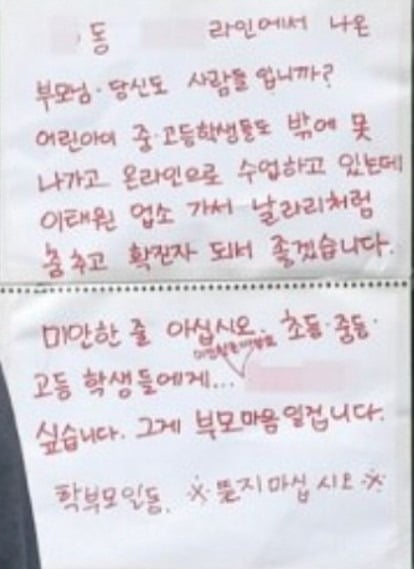 동 라인에서 나온
부모님. 당신도 사람들 입니까?
어린아이 중·고등학생들도 밖에 못
나가고 온라인으로 수업하고 있는데
이태원 업소 가서 날라리처럼
춤추고 확진자 되서 좋겠습니다.
미안한 줄 아십시오. 초등·중등·
고등 학생들에게...
싶습니다. 그게 부모마음일겁니다.
학부모일동. ※뜯지마십시오※